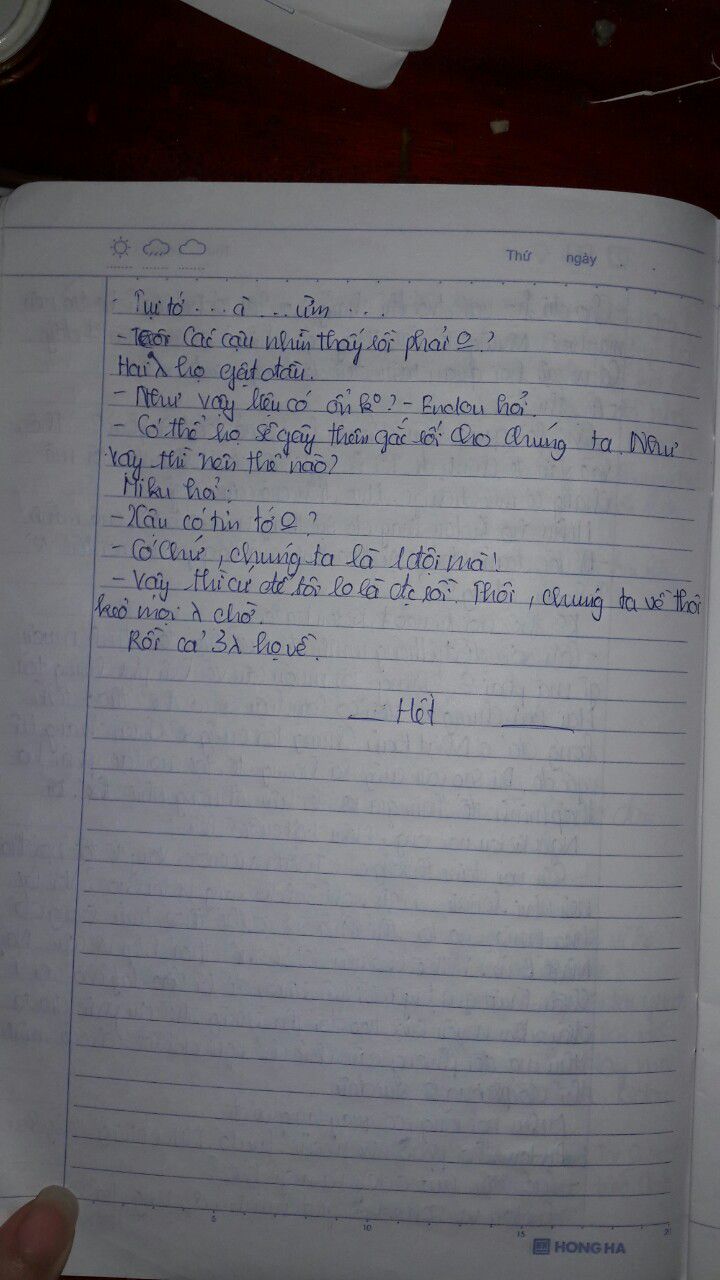 Thứ ngày
- Tụi tớ ... à ... ừm ...
- Các cậu nhìn thấy rồi phải O?
Hai λ họ gật đầu.
- Như vậy liệu có ổn ko? - Endou hỏi.
- Có thể họ sẽ gây thêm rắc rối cho chúng ta. Như
vậy thì nên thế nào?
Miku hỏi:
- Cậu có tin tớ O?
- Có chứ, chúng ta là 1 đôi mà!
- Vậy thì cứ để tôi lo là đc rồi. Thôi, chúng ta về thôi
kẻo mọi λ chờ.
Rồi cả 3 λ họ về.
— Hết —
5 10 15
HONG HA